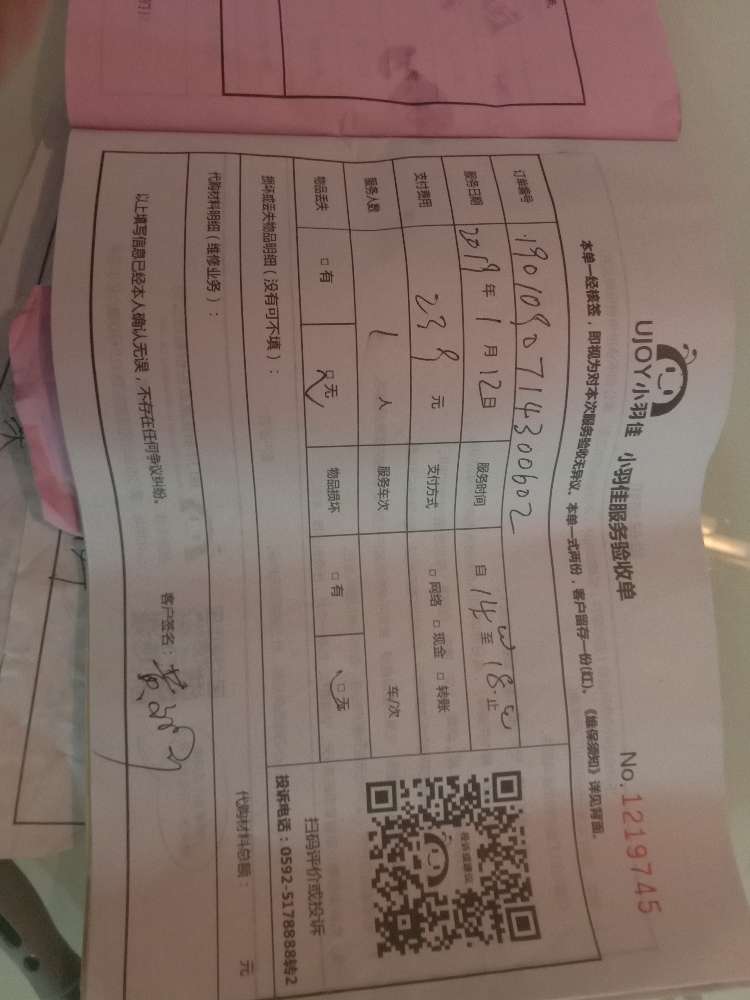 UJOY小羽佳 小羽佳服务验收单
No. 1219745
本单一经核签，即视为对本次服务验收无异议。本单一式两份，客户留存一份(红)。《维保须知》详见背面。
订单编号 190109071430 0602
服务日期 2019年1月12日 服务时间 自14:00至18:00止
支付费用 239元 支付方式 □网络 □现金 □转账
服务人数 1人 服务车次 车/次
物品丢失 □有 □无 物品损坏 □有 □无
损坏或丢失物品明细（没有可不填）：
代购材料明细（维修业务）：
代购材料总额： 元
以上填写信息已经本人确认无误，不存在任何争议纠纷。
客户签名：
投诉或建议
扫码评价或投诉
投诉电话：0592-5178888转2